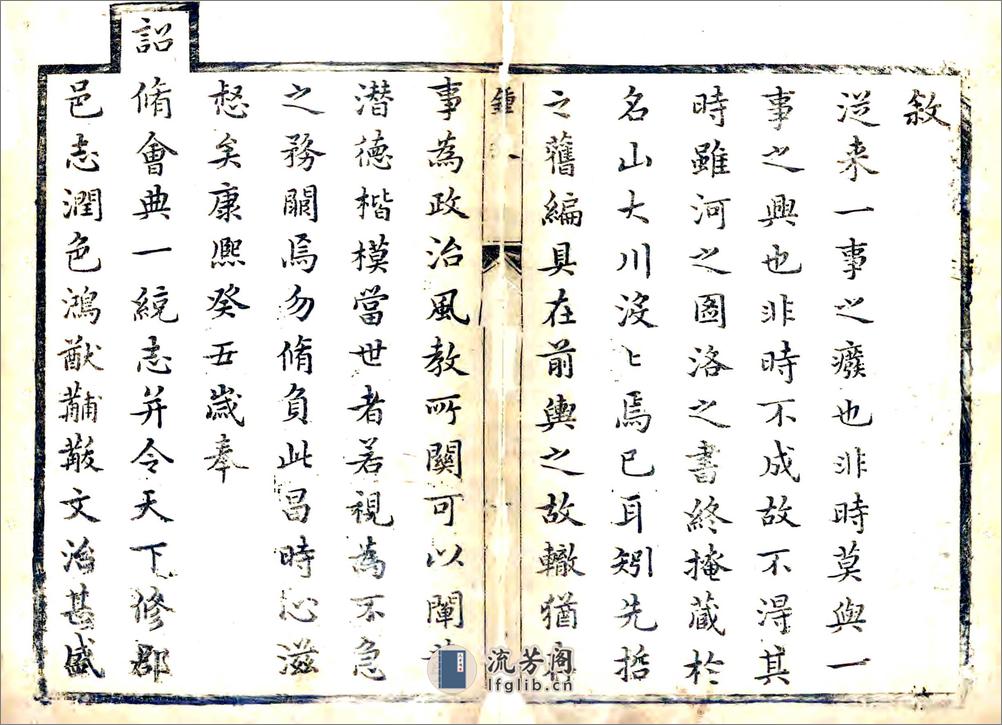 敘
從来一事之癈也非時莫與一
事之興也非時不成故不得其
時雖河之圖洛之書終掩蔵於
名山大川沒〻焉已耳矧先哲
之舊編具在前輿之故轍猶
鍾
事為政治風教所關可以闡
潜徳楷模當世者若視為不急
之務闕焉勿脩負此昌時心滋
愁矣康熙癸丑歳奉
詔
脩會典一統志并令天下修郡
邑志潤色鴻猷黼黻文治甚盛
流芳阁
lfglib.cn